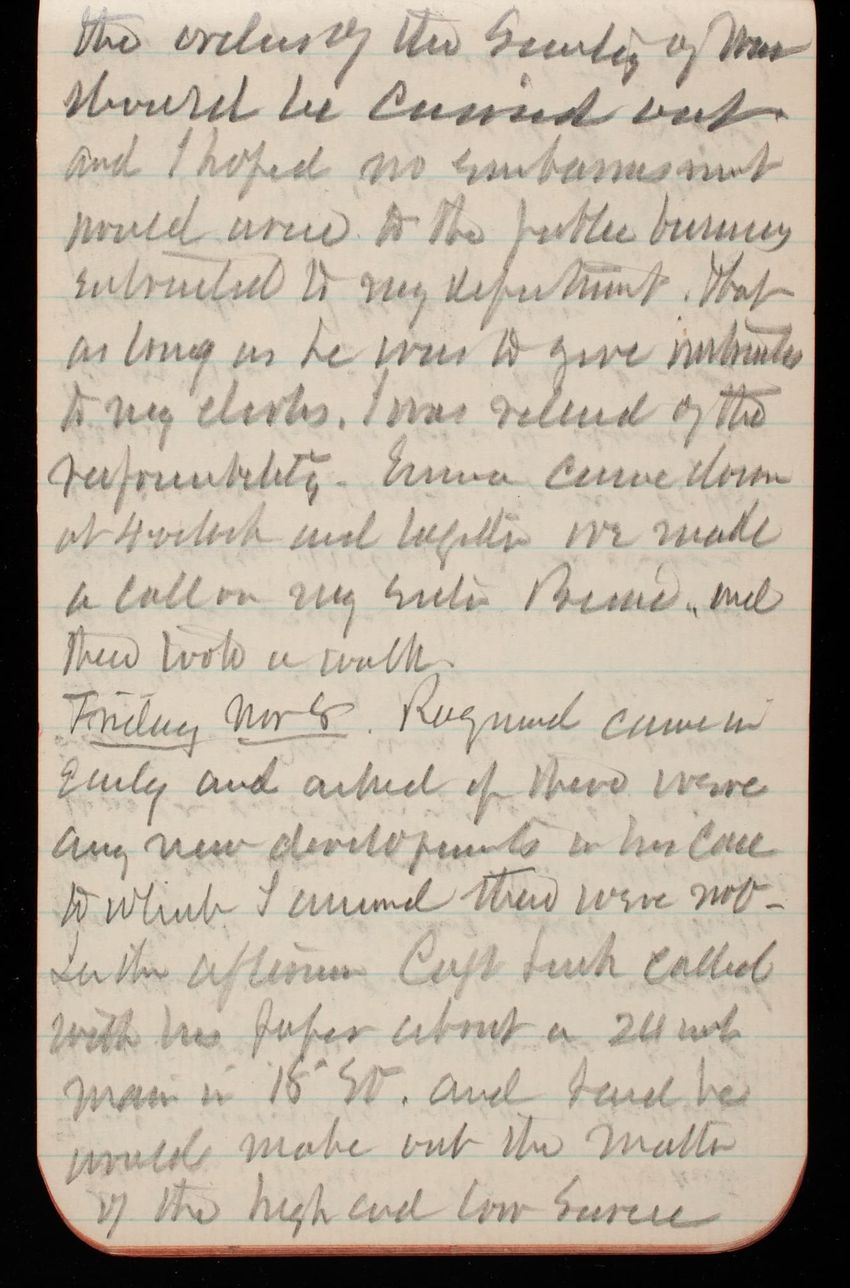 the orders of the Secretary of War
should be carried out
and I hoped no embarrassment
would arise to the public business
entrusted to my department. That
as long as he was to give instructions
to my clerks, I was relieved of the
responsibility. Emma came down
at 4 oclock and together we made
a call on my sister and
then took a walk.
Friday Nov 8. Raymond came in
Early and asked if there were
any new developments in his case
to which I answered there were not -
In the afternoon Capt called
with his paper about a 24 inch
main in 15" St. and said he
would make out the matter
of the high and low service